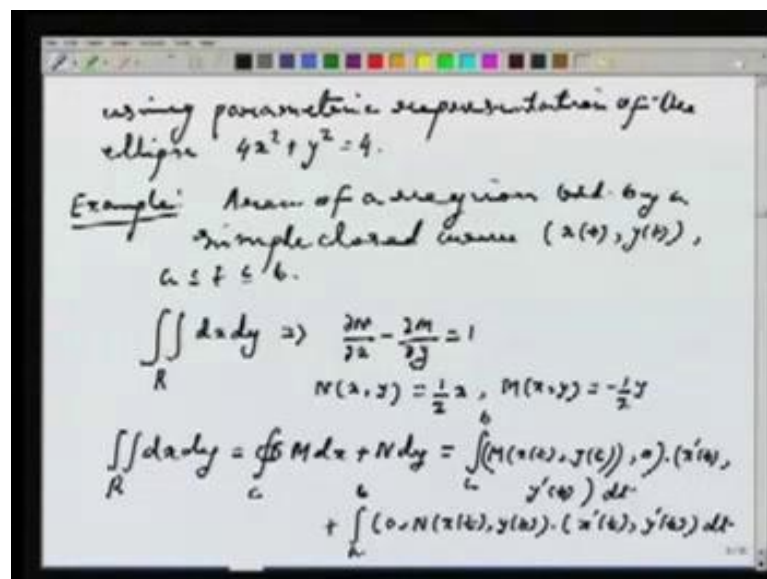 using parametric representation of the
ellipse 4x² + y² = 4.
Example: Area of a region bdd. by a
simple closed curve (x(t), y(t)),
a ≤ t ≤ b.
∬_R dxdy ⇒ ∂N/∂x - ∂M/∂y = 1
N(x,y) = 1/2 x, M(x,y) = -1/2 y
∬_R dxdy = ∮_C M dx + N dy = ∫_a^b (M(x(t), y(t)), 0).(x'(t),
y'(t)) dt
+ ∫_a^b (0, N(x(t), y(t)).(x'(t), y'(t)) dt